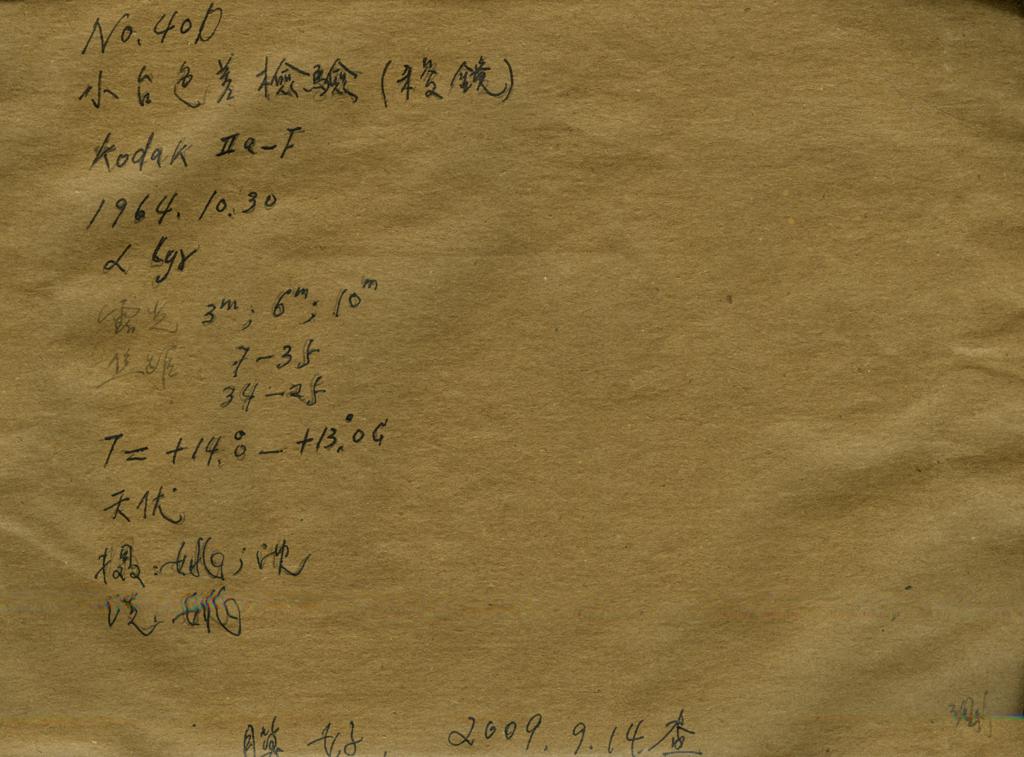 No. 40D
小台色差檢驗(稜鏡)
Kodak IIa-F
1964.10.30
α Lyr
露光 3m; 6m; 10m
7-35
34-25
T= +14.°0 — +13.°0 C
天伏
摄:姚; 沈
洗:姚
膜好. 2009.9.14.查